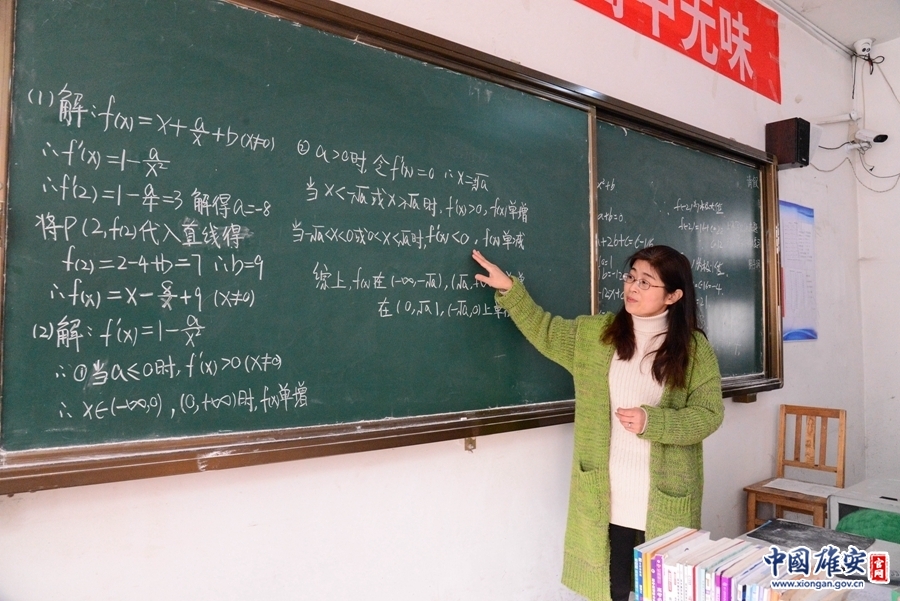 中无味
(1) 解：f(x)=x+a/x+b(x≠0)
∴f'(x)=1-a/x²
∴f'(2)=1-a/4=3 解得a=-8
将P(2,f(2))代入直线得
f(2)=2-4+b=7 ∴b=9
∴f(x)=x-8/x+9 (x≠0)
(2)解：f'(x)=1-a/x²
∴①当a≤0时,f'(x)>0(x≠0)
∴x∈(-∞,0),(0,+∞)时,f(x)单增
②a>0时,令f'(x)=0 ∴x=±√a
当x<-√a或x>√a时,f'(x)>0,f(x)单增
当-√a<x<0或0<x<√a时,f'(x)<0,f(x)单减
综上,f(x)在(-∞,-√a),(√a,+∞)单增
在(0,√a),(-√a,0)上单
x²+b
a+b=0
中国雄安 官网
www.xiongan.gov.cn